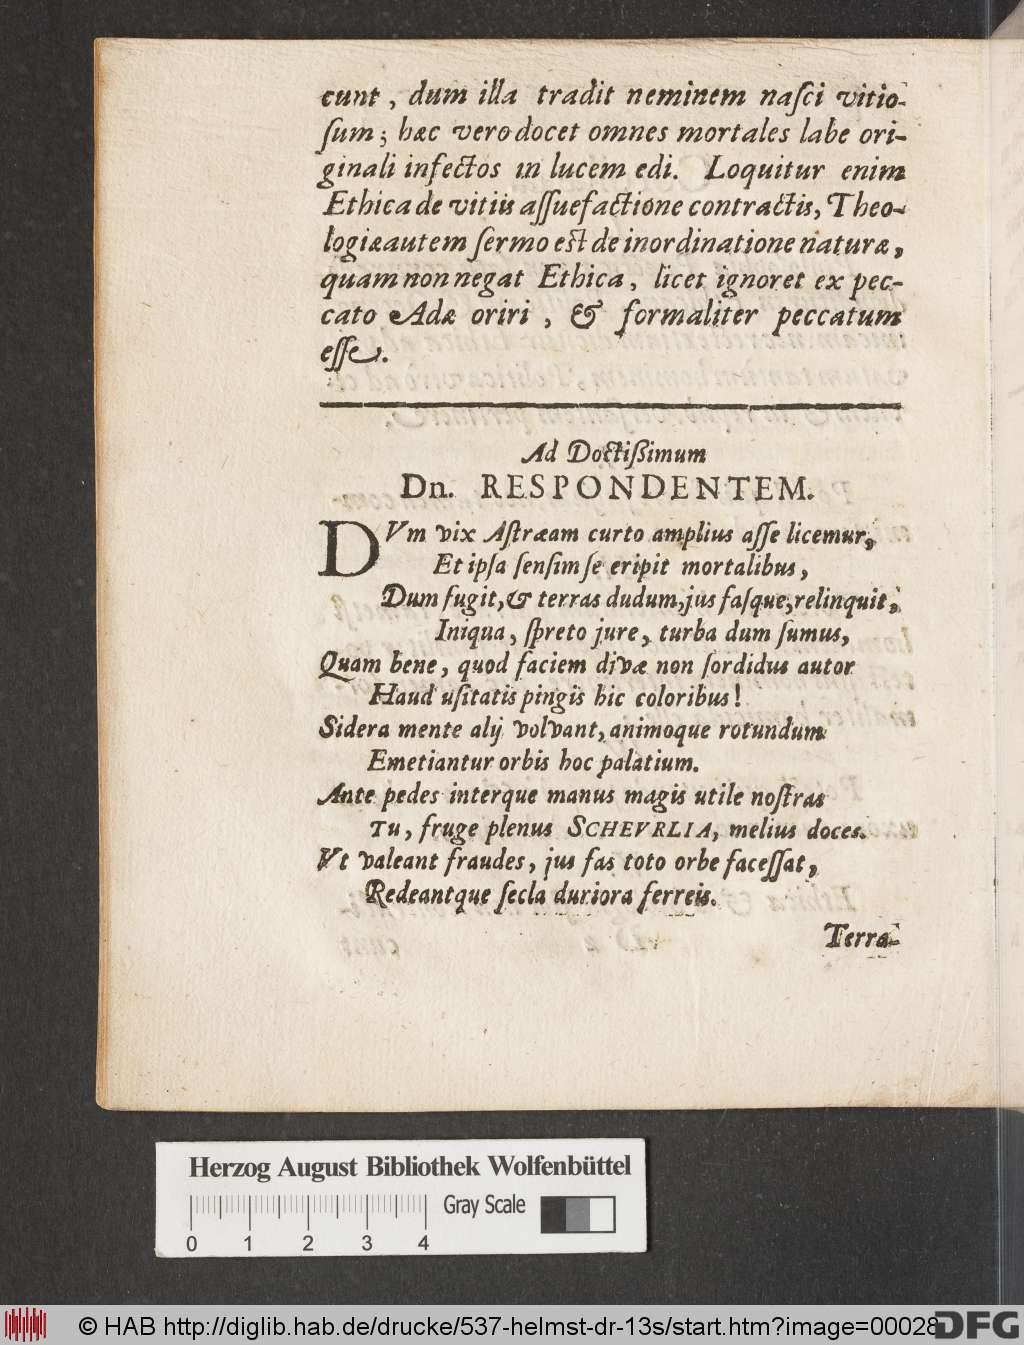 cunt, dum illa tradit neminem nasci vitio-
sum; hæc vero docet omnes mortales labe ori-
ginali infectos in lucem edi. Loquitur enim
Ethica de vitiis assuefactione contractis, Theo-
logiæ autem sermo est de inordinatione naturæ,
quam non negat Ethica, licet ignoret ex pec-
cato Adæ oriri, & formaliter peccatum
esse.
Ad Doctißimum
Dn. RESPONDENTEM.
DVm vix Astræam curto amplius asse licemur,
Et ipsa sensim se eripit mortalibus,
Dum fugit, & terras dudum, jus fasque, relinquit,
Iniqua, spreto jure, turba dum sumus,
Quam bene, quod faciem divæ non sordidus autor
Haud usitatis pingis hic coloribus!
Sidera mente alij volvant, animoque rotundum
Emetiantur orbis hoc palatium.
Ante pedes interque manus magis utile nostras
Tu, fruge plenus SCHEVRLIA, melius doces.
Vt valeant fraudes, jus fas toto orbe facessat,
Redeantque secla duriora ferreis.
Terra-
Herzog August Bibliothek Wolfenbüttel
Gray Scale
0 1 2 3 4
© HAB http://diglib.hab.de/drucke/537-helmst-dr-13s/start.htm?image=00028
DFG